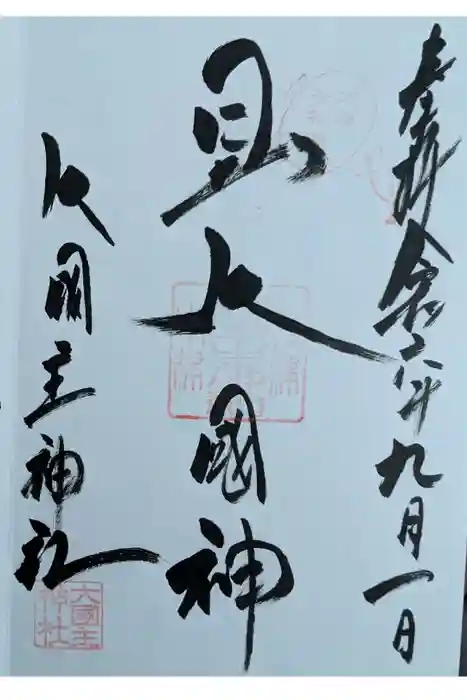 奉拝 令和六年九月一日
大國神
大國主神社
大國主
神社